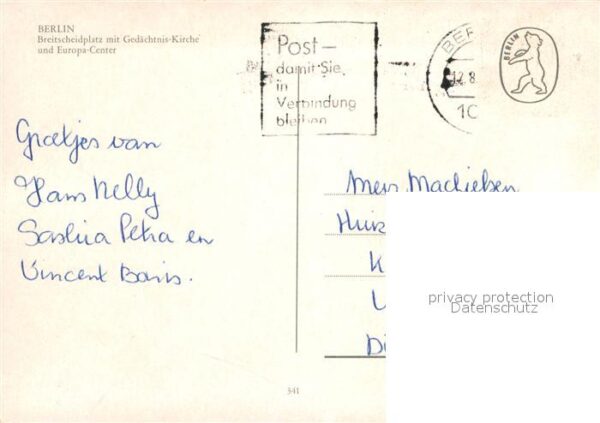 BERLIN
Breitscheidplatz mit Gedächtnis-Kirche
und Europa-Center
Post –
damit Sie
in
Verbindung
bleiben
BER
12.8
10
BERLIN
Groetjes van
Hans Nelly
Saskia Petra en
Vincent Boris.
Machielsen
privacy protection
Datenschutz
341